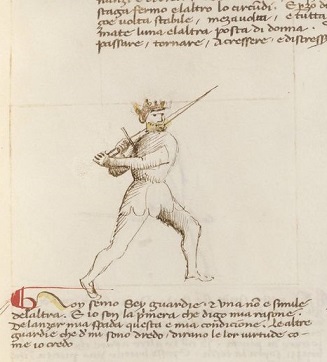 staga fermo e laltro lo circũdi. E ꝑzo de
çoe volta stabile / meza volta / e tutta
mate luna e laltra posta di donna.
passare, tornare, acressere, e discress
Noy semo Sey guardie. & una non e simile
de laltra. E io son la primera che digo mia rasone.
De lanzar mia spada questa e mia condicione. Le altre
guardie che dremi sono credo, dirano le lor virtude co-
me io credo